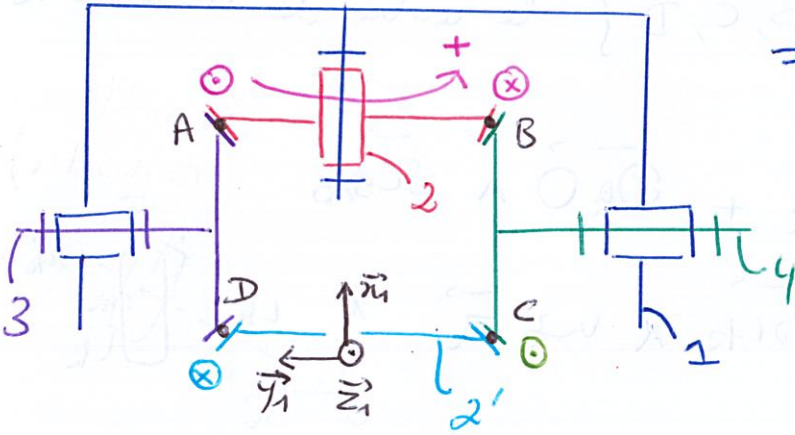 +
A
B
2
3
D
C
4
x⃗₁
y⃗₁
z⃗₁
2'
1
=